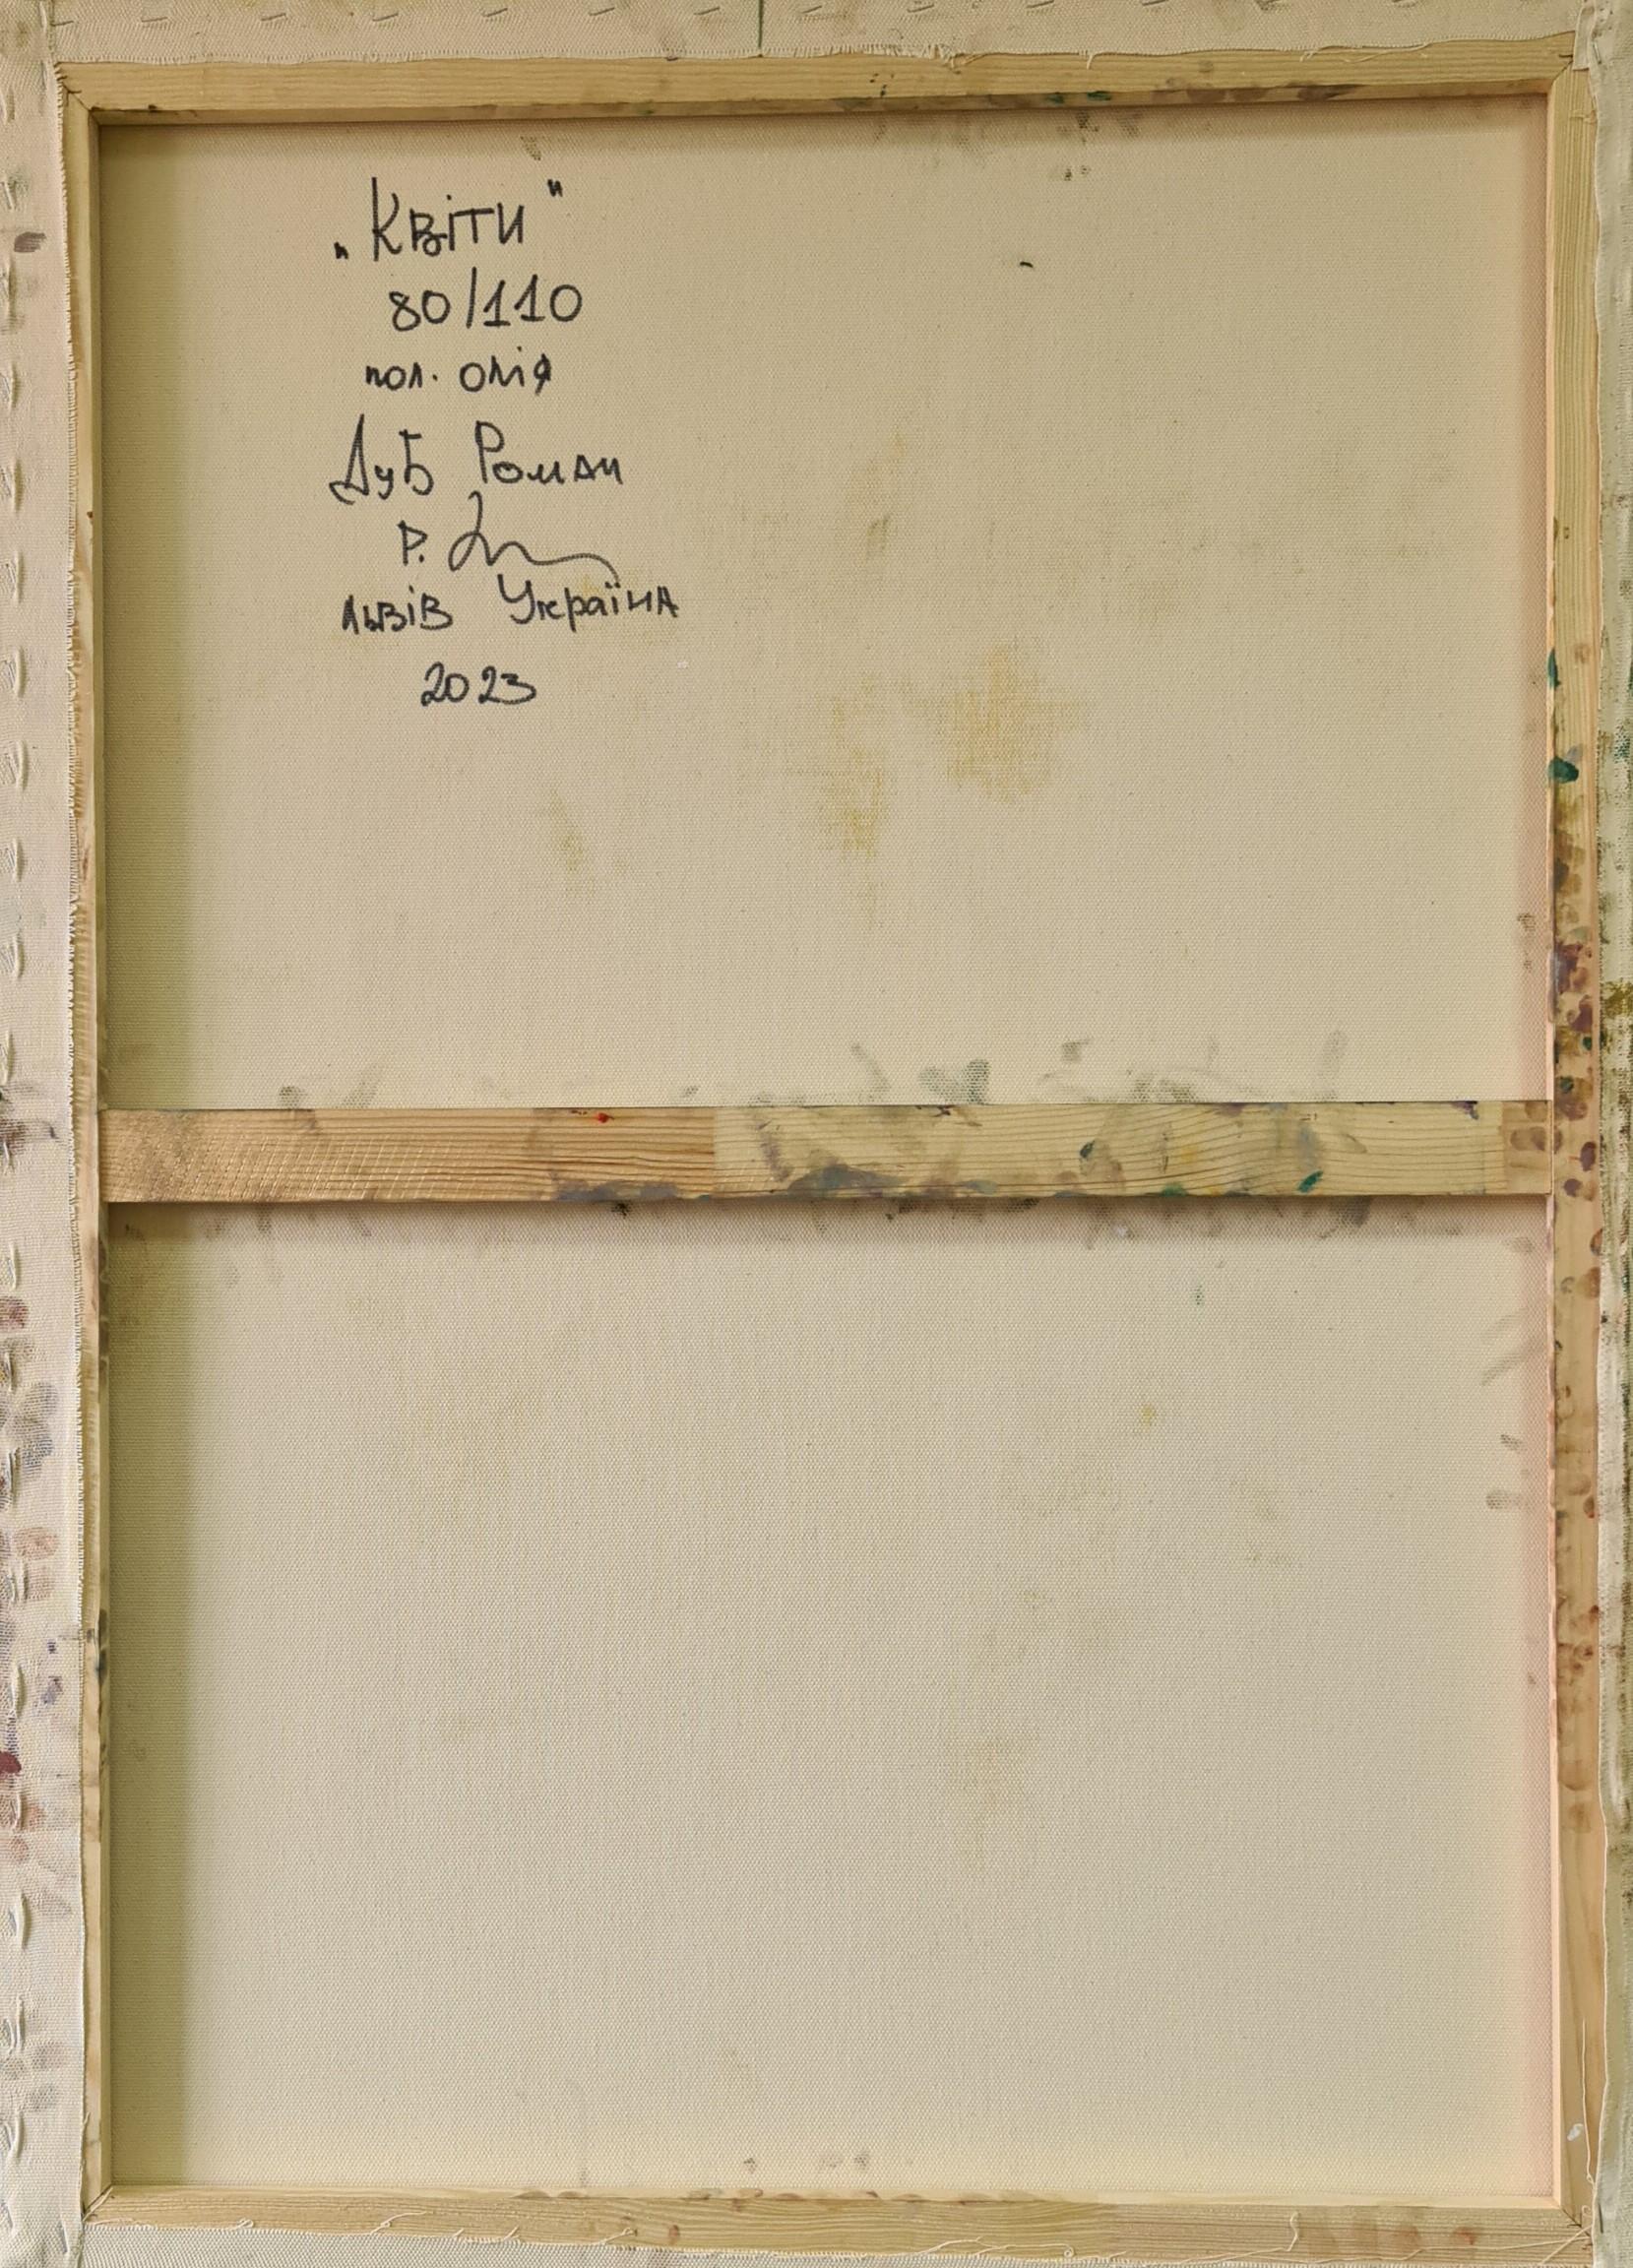 „Квіти"
80/110
пол. олія
Дуб Роман
Р.
Львів Україна
2023